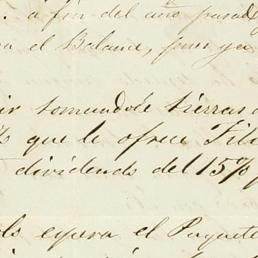 à fin del año pasad
a el Balance, pues ya
ir tomandole tierras a
% que le ofrece Fil
dividendo del 15%
ds espera el Paquete